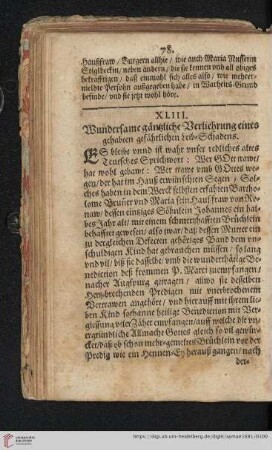 78.
Haußfraw, Burgern allhie, wie auch Maria Nusserin
Stiglbeckin, neben andern, die sie kennen vnd all obiges
bekräfftigen, daß einmahl sich alles also, wie mehrer-
meldte Persohn außgegeben habe, in Warheits Grund
befinde, vnd sie jetzt wohl höre.
XLIII.
Wundersame gäntzliche Verliehrung eines
gehabten gefährlichen Leib-Schadens.
ES bleibt vnnd ist wahr vnser redliches altes
Teutsches Sprichwort: Wer GOtt trawt,
hat wohl gebawt: Wer trawt vmb GOttes we-
gen, der hat im Hauß erwünschten Segen; Sol-
ches haben in dem Werck selbsten erfahren Bartho-
lome Breuer vnd Maria sein Hausfraw von
dessen eintziges Söhnlein Johannes ein halbes
Jahr alt, mit einem schmertzhafften Brüchlein
behafftet gewesen, also zwar, daß dessen Mutter ein
zu dergleichen Defecten gehöriges Band dem vn-
schuldigen Kind hat gebrauchen müssen, so lang
vnd vil, biß sie dasselbe vmb die wunderthätige Be-
nediction deß frommen P. Marci zuempfangen,
nacher Augspurg getragen, allwo sie desselben
Hertzbrechenden Predigen mit vnerbrochenem
Vertrawen angehört, vnd hierauff mit ihrem lie-
ben Kind sothanne heilige Benediction mit Ver-
giessung viler Zäher empfangen, auff welche die vn-
ergründliche Allmacht Gottes gleich so vil gewür-
cket, daß ob schon mehr-gemeltes Brüchlein vor der
Predig wie ein Hennen-Ey herauß gangen, nach
der-